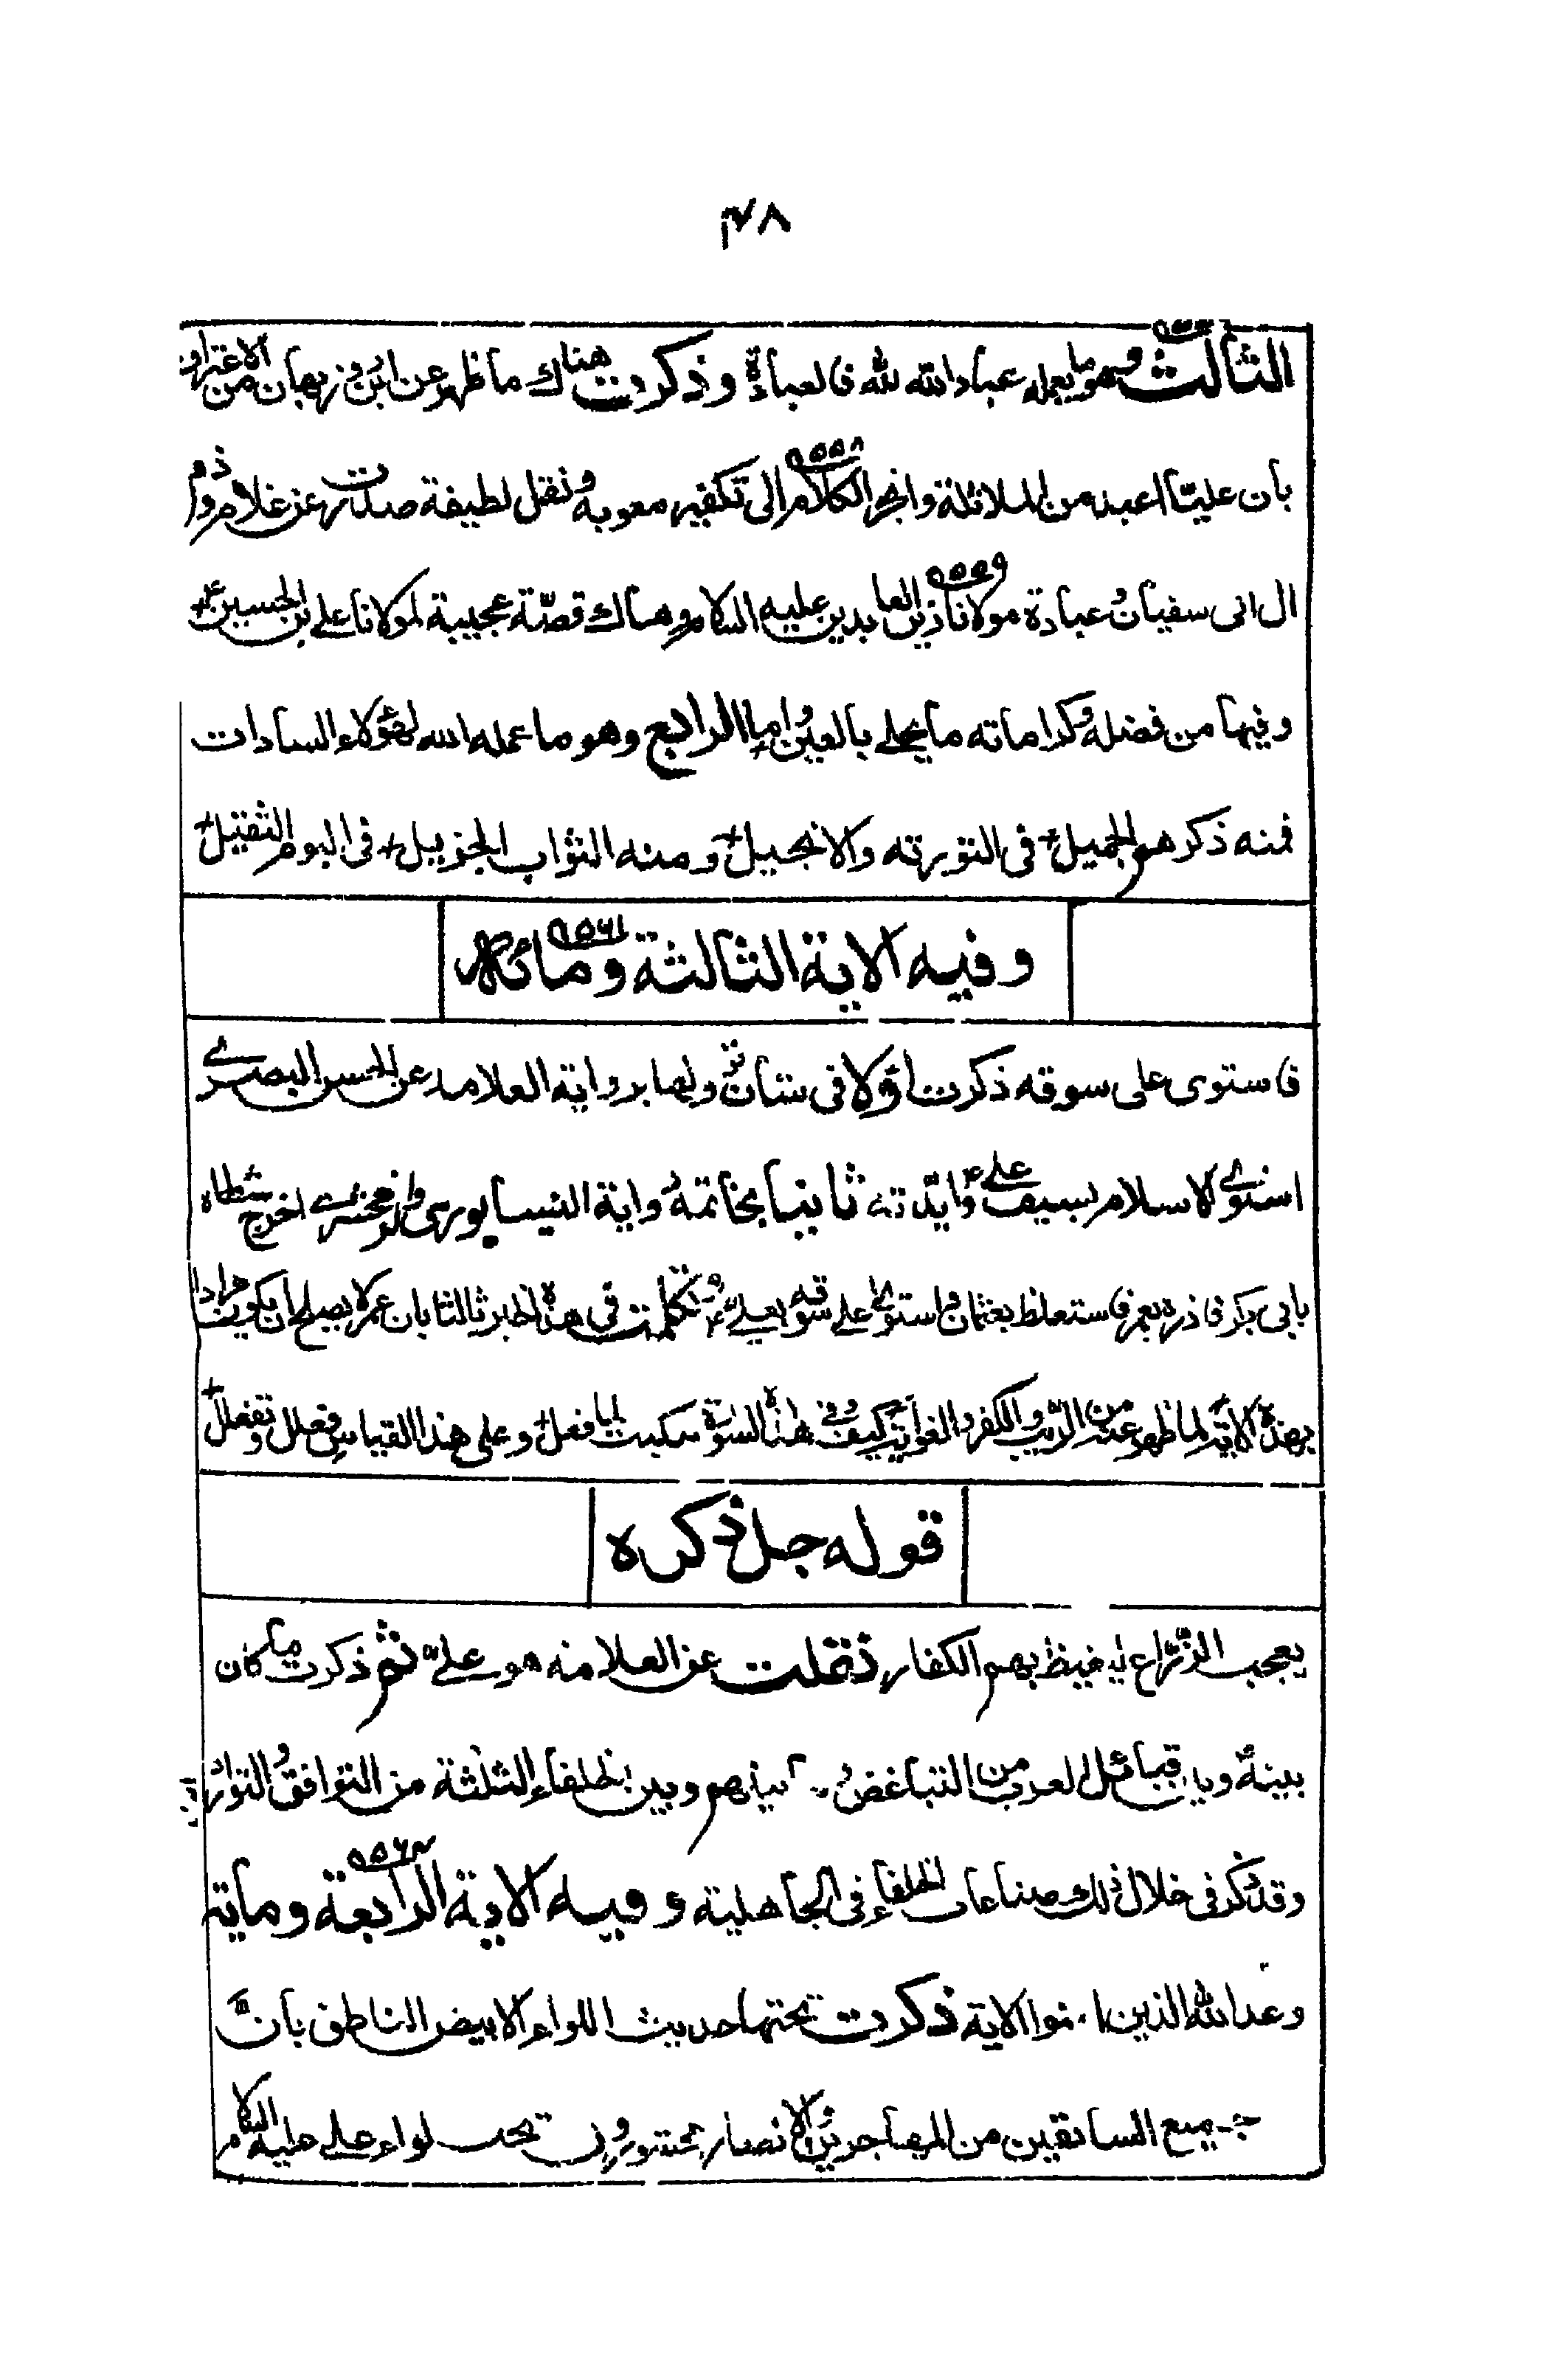 ٣٧٨
الثالث وهو ما يعمله عباد الله لله فالعبادة وذكرت هناك ما ظهر عن ابن روزبهان من الاعتراف
بان عليّا اعبد من الملائكة وانجر الكلام الى تكفير معوية ونقل لطيفة صدرت عن غلام وذم
ال ابى سفيان وعبادة مولانا زين العابدين عليه السلام وهناك قصّة عجيبة لمولانا على بن الحسين ع
وفيها من فضله وكراماته ما يجلى بالعين واما الرابع وهو ما عمله الله لهؤلاء السادات
فمنه ذكرهم الجميل في التورته والانجيل ومنه الثواب الجزيل في اليوم الثقيل
وفيه الاية الثالثة ومائة ٩٥٦١
فاستوى على سوقه ذكرت اولا فى شان نزولها برواية العلامه عن الحسن البصرے
استوے الاسلام بسيف علے ع وايّدته ثانيا بخاتمة رواية النيسابورى والزمخشرے اخرج شطاه
بابى بكر فاذره بعمر فاستغلظ بعثمان فاستوى علے سوقه بعلے ع وتكلمت في هذا الخبر ثالثا بان عمر لا يصلح ان يكون مرادا
بهذه الاية لما ظهر عنه من الريب والكفر والغواية كيف وفي هذه السورة سكبت ايا فعل وعلى هذا القياس فعلل وتفعلل
قوله جل ذكره
يعجب الزّرّاع ليغيظ بهم الكفار نقلت عن العلامه هو علىّ ثم ذكرت ما كان
بينه وبين قبائل العرب من التباغض وما بينهم وبين الخلفاء الثلثة من التوافق والتوادد
وقد ذكر فى خلال ذلك صناعات الخلفاء فى الجاهلية وفيه الاية الرابعة وماية ٩٥٦٣
وعد الله الذين امنوا الاية ذكرت تحتها حديث اللواء الابيض الناطق بانّ
جميع السابقين من المهاجرين والانصار محشورون تحت لواء على عليه السلام